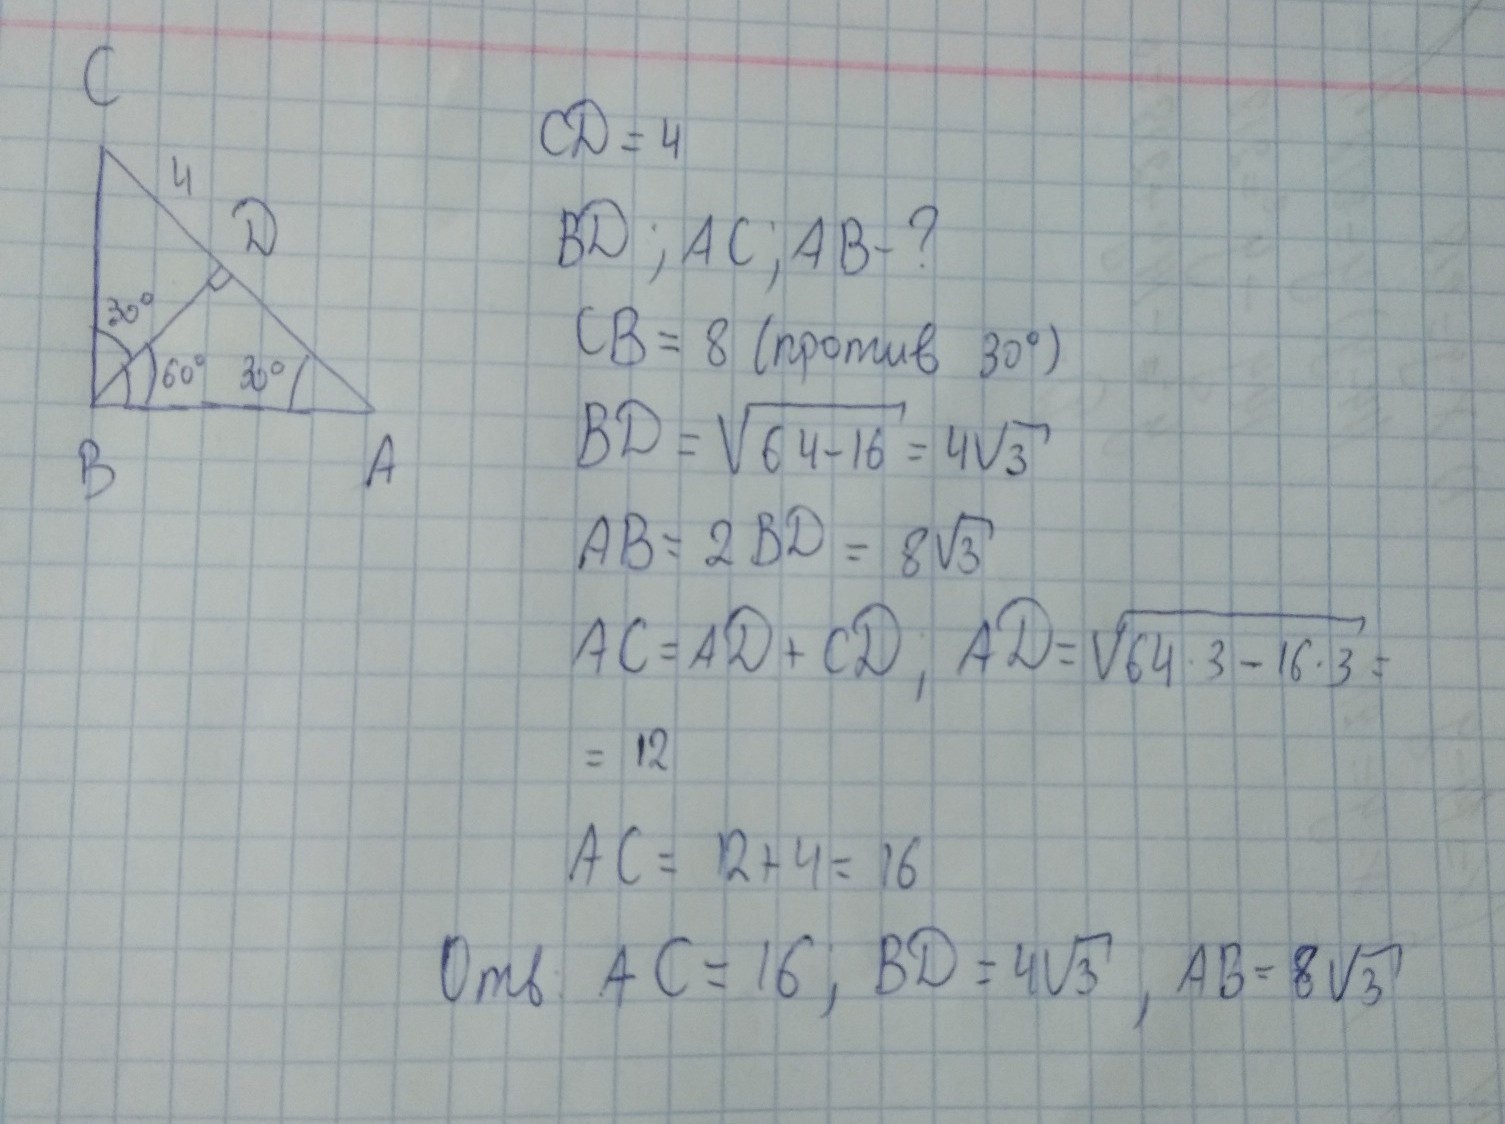 C
4
D
30°
60° 30°
B
A
CD = 4
BD ; AC ; AB - ?
CB = 8 (против 30°)
BD = √64-16 = 4√3
AB = 2 BD = 8√3
AC = AD + CD ; AD = √64·3 - 16·3 =
= 12
AC = 12 + 4 = 16
Отв: AC = 16 ; BD = 4√3 , AB = 8√3